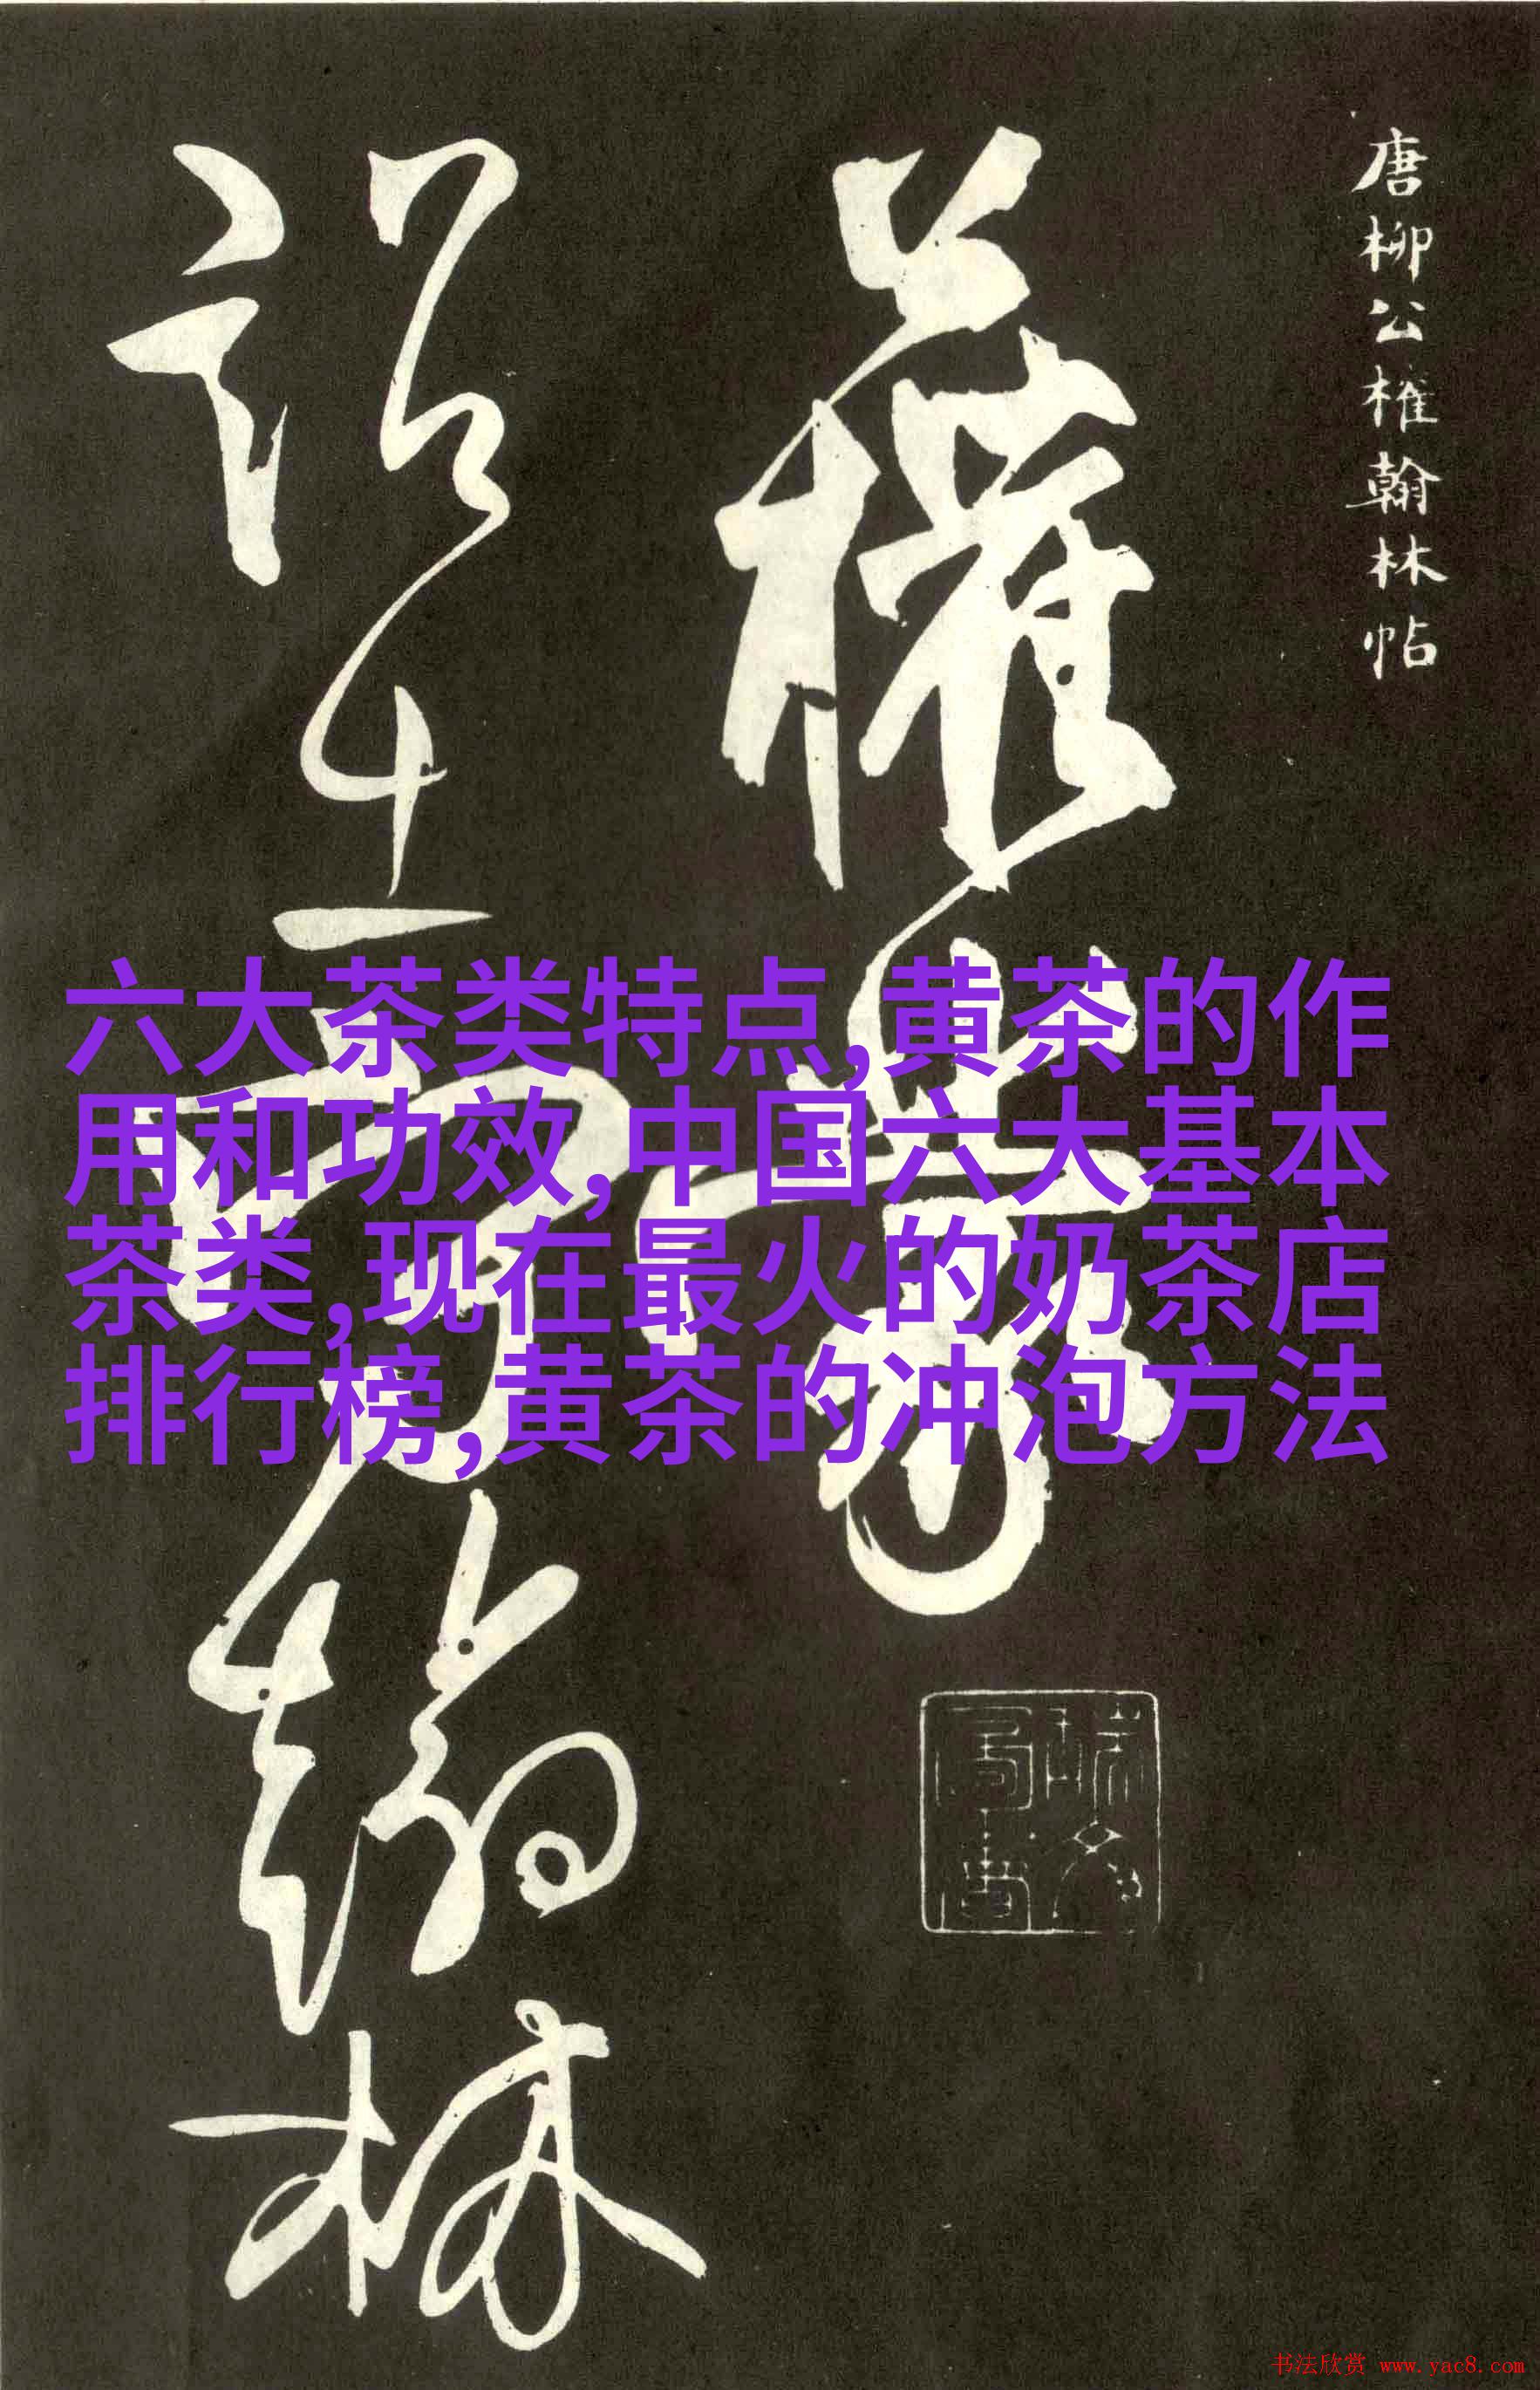 唐柳公權翰林帖
權與象
詔出高翰林
六大茶类特点,黄茶的作
用和功效,中国六大基本
茶类,现在最火的奶茶店
排行榜,黄茶的冲泡方法
书法欣赏 www.yac8.com